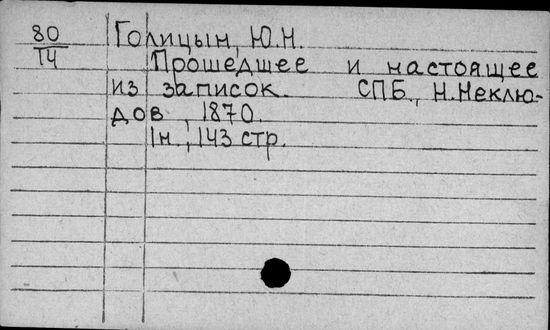 80 Голицын, Ю.Н.
Т4 Прошедшее и настоящее
из записок. СПБ., Н.Неклю-
дов, 1870.
1н., 143 стр.